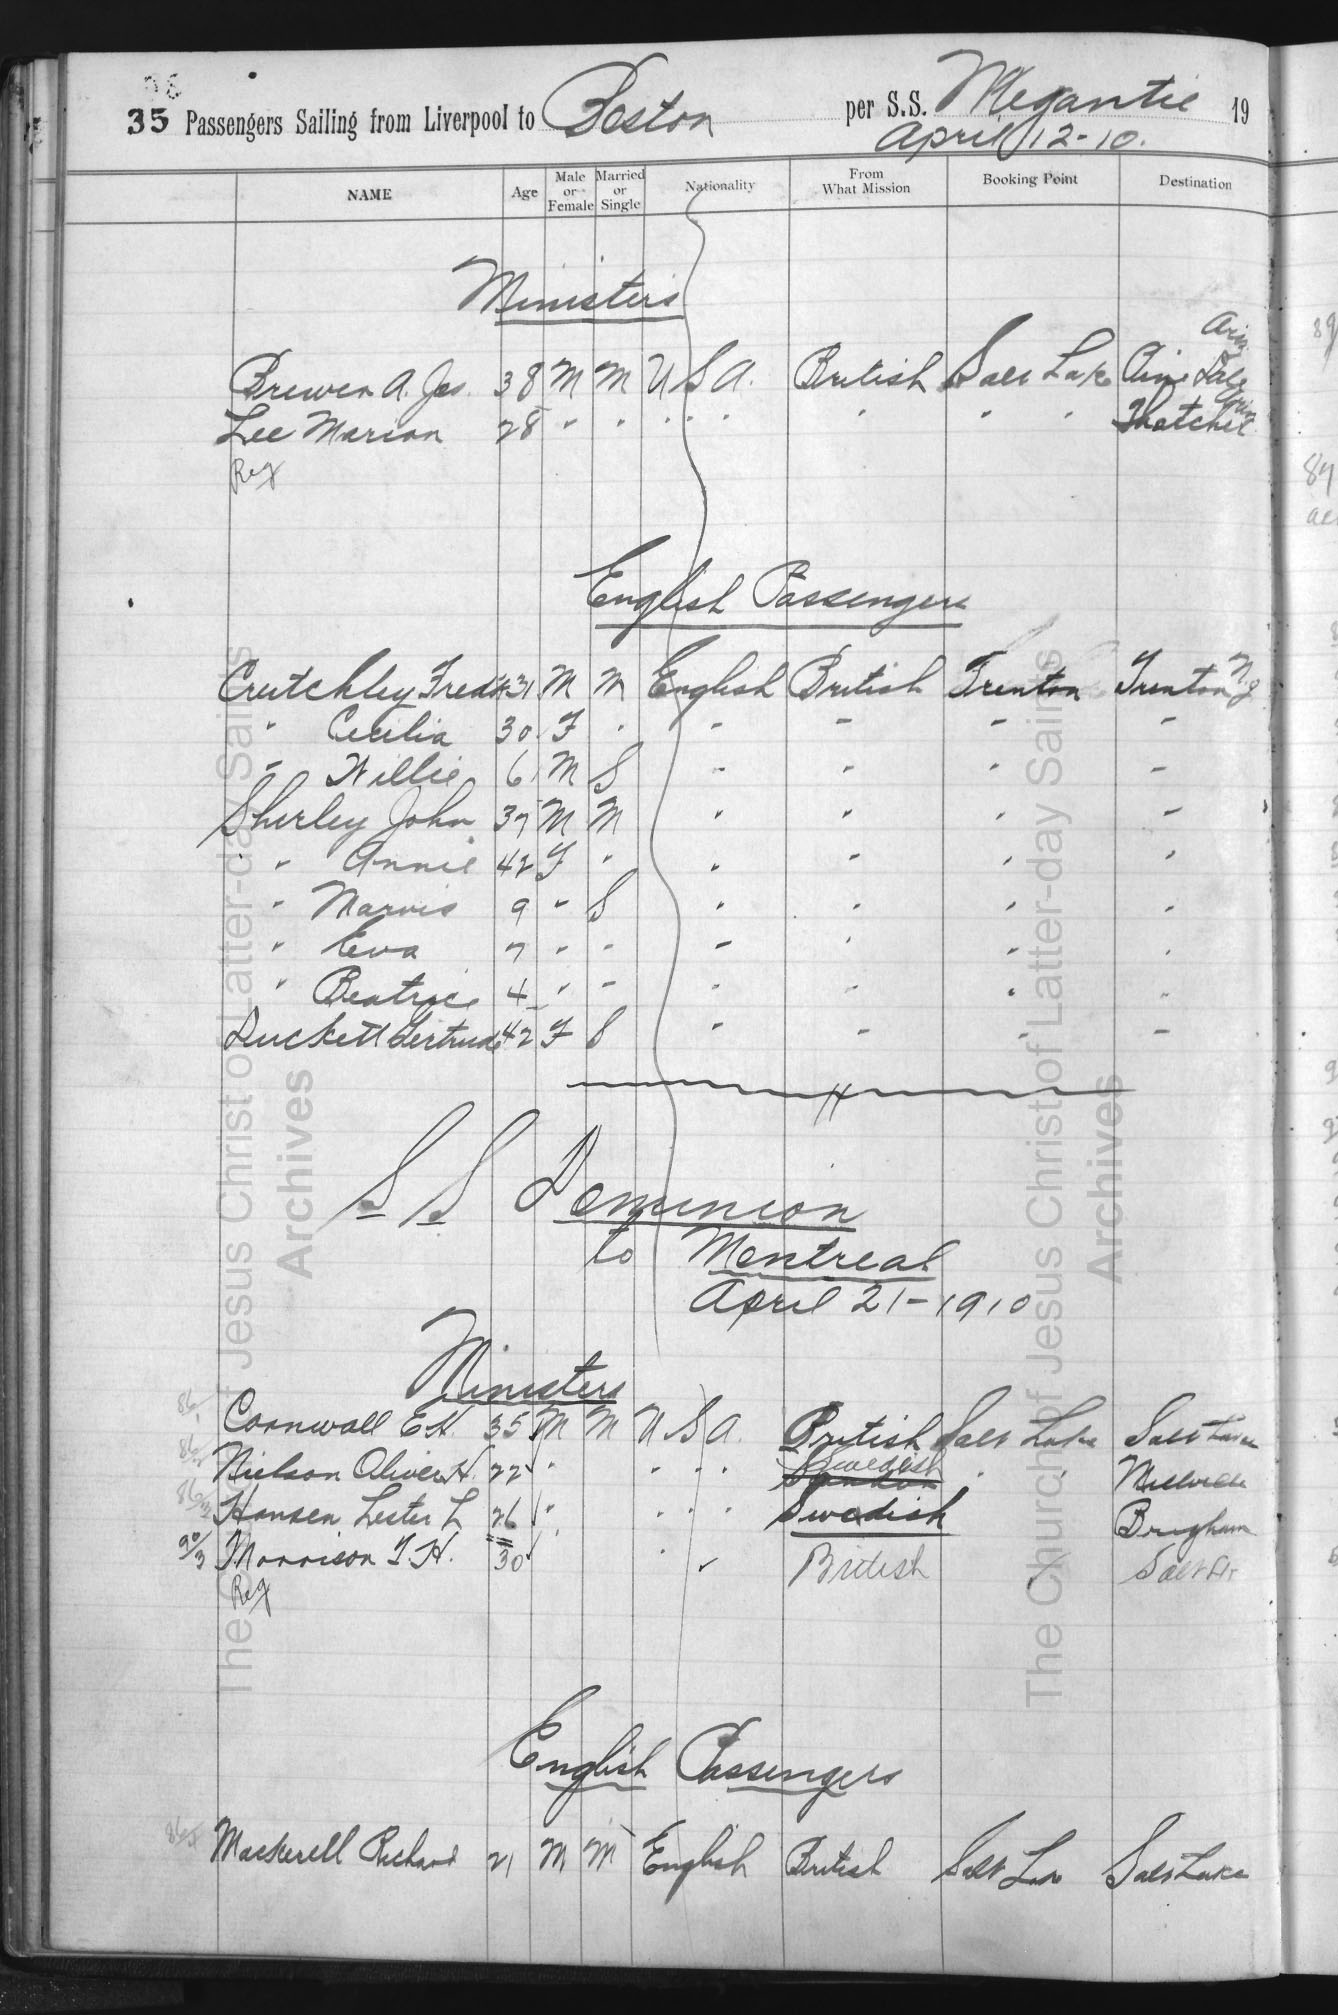 35 Passengers Sailing from Liverpool to Boston per S.S. Megantic 19
April 12-10.
NAME Age Male or Female Married or Single Nationality From What Mission Booking Point Destination
Ministers
Ariz
Brewer A. Jas. 38 M M U S A. British Salt Lake Pine Dale
Ariz
Lee Marion 28 " " " " " " " " Thatcher
Reg
English Passengers
Crutchley Fredk 31 M M English British Trenton Trenton N.J
" Cecilia 30 F " " " " "
" Willie 6 M S " " " "
Shirley John 37 M M " " " "
" Annie 42 F " " " " "
" Marvis 9 " S " " " "
" Eva 7 " " " " " "
" Beatrice 4 " " " " " "
Duckett Gertrude 42 F S " " " "
S S Dominion
to Montreal
April 21-1910
Ministers
Cornwall E H. 35 M M U S A. British Salt Lake Salt Lake
Nielson Oliver H. 22 " " " " Swedish " " Millville
Hansen Lester L 26 " " " " Swedish Brigham
90/3 Morrison T H. 30 " " British " Salt Lk
Reg
English Passengers
Mackerell Richard 21 M M English British Salt Lake Salt Lake
The Church of Jesus Christ of Latter-day Saints
Archives
The Church of Jesus Christ of Latter-day Saints
Archives